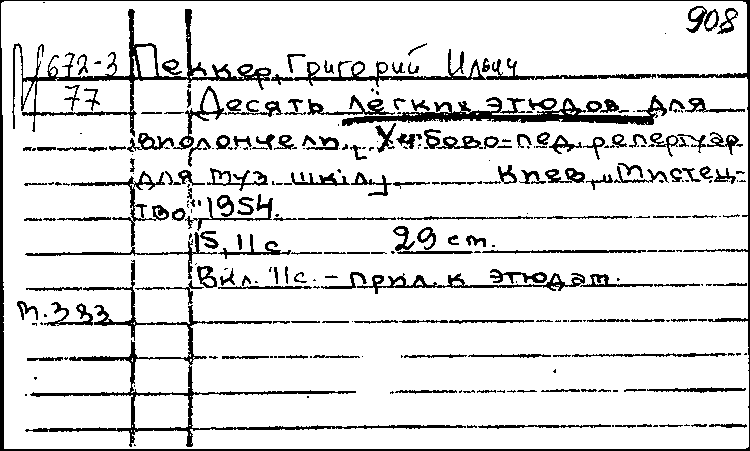 908
М 672-3 Пеккер, Григорий Ильич
77 Десять лёгких этюдов для
виолончели. [Учбово-пед. репертуар
для муз. шкіл.] Киев, „Мистец-
тво", 1954.
15, 11 с. 29 см.
Вкл. 11 с. – прил. к этюдам.
п. 383